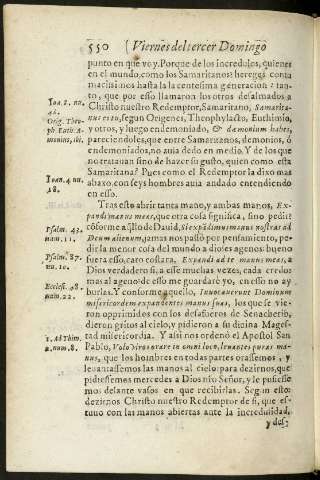 550 (Viernes del tercer Domingo
punto en que voy. Porque de los incredulos, quienes
en el mundo, como los Samaritanos? hereges conta
macissimos hasta la centesima generacion: tan-
to, que por esso llamaron los otros desalmados a
Christo nuestro Redemptor, Samaritano, Samarita-
nus es tu, segun Origenes, Theophylacto, Euthimio,
y otros, y luego endemoniado, & dæmonium habes,
pareciendoles, que entre Samaritanos, demonios, ó
endemoniados, no auia dedo en medio. Y de los que
no tratauan sino de hazer su gusto, quien como esta
Samaritana? Pues como el Redemptor la dixo mas
abaxo, con seys hombres auia andado entendiendo
en esso.
Tras esto abrir tanta mano, y ambas manos, Ex-
pandi manus meas, que otra cosa significa, sino pedir?
cõforme a
Deum alienum, jamas nos passò por pensamiento, pe-
dir la menor cosa del mundo a dioses agenos: bueno
fuera esso, caro costara. Expandi ad te manus meas, a
Dios verdadero si, a esse muchas vezes, cada
mas al ageno de esso me guardarè yo, en esso no ay
burlas. Y conforme aquello, Inuocauerunt Dominum
misericordem expandentes manus suas, los que se vie-
ron opprimidos con los desafueros de Senacherib,
dieron gritos al cielo, y pidieron a su diuina Mages-
tad misericordia. Y assi nos ordenò el Apostol San
Pablo, Volo viros orare in omni loco, leuantes puras ma-
nus, que los hombres en todas partes orassemos, y
leuantassemos las manos al cielo: para dezirnos, que
pidiessemos mercedes a Dios nro Señor, y le pusiesse
mos delante vasos en que recibirlas. Segun esto:
dezirnos Christo nuestro Redemptor de si, que es-
tuuo con las manos abiertas ante la incredulidad,
y des-
Ioa. 8. nu.
48.
Orig. Theo-
ph. Euth. A-
monius, ibi.
Ioan. 4. nu.
18.
Psalm. 43.
num. 21.
Psalm. 87.
nu. 10.
Ecclesi. 48.
num. 22.
1. Ad Thim.
2. num. 8.